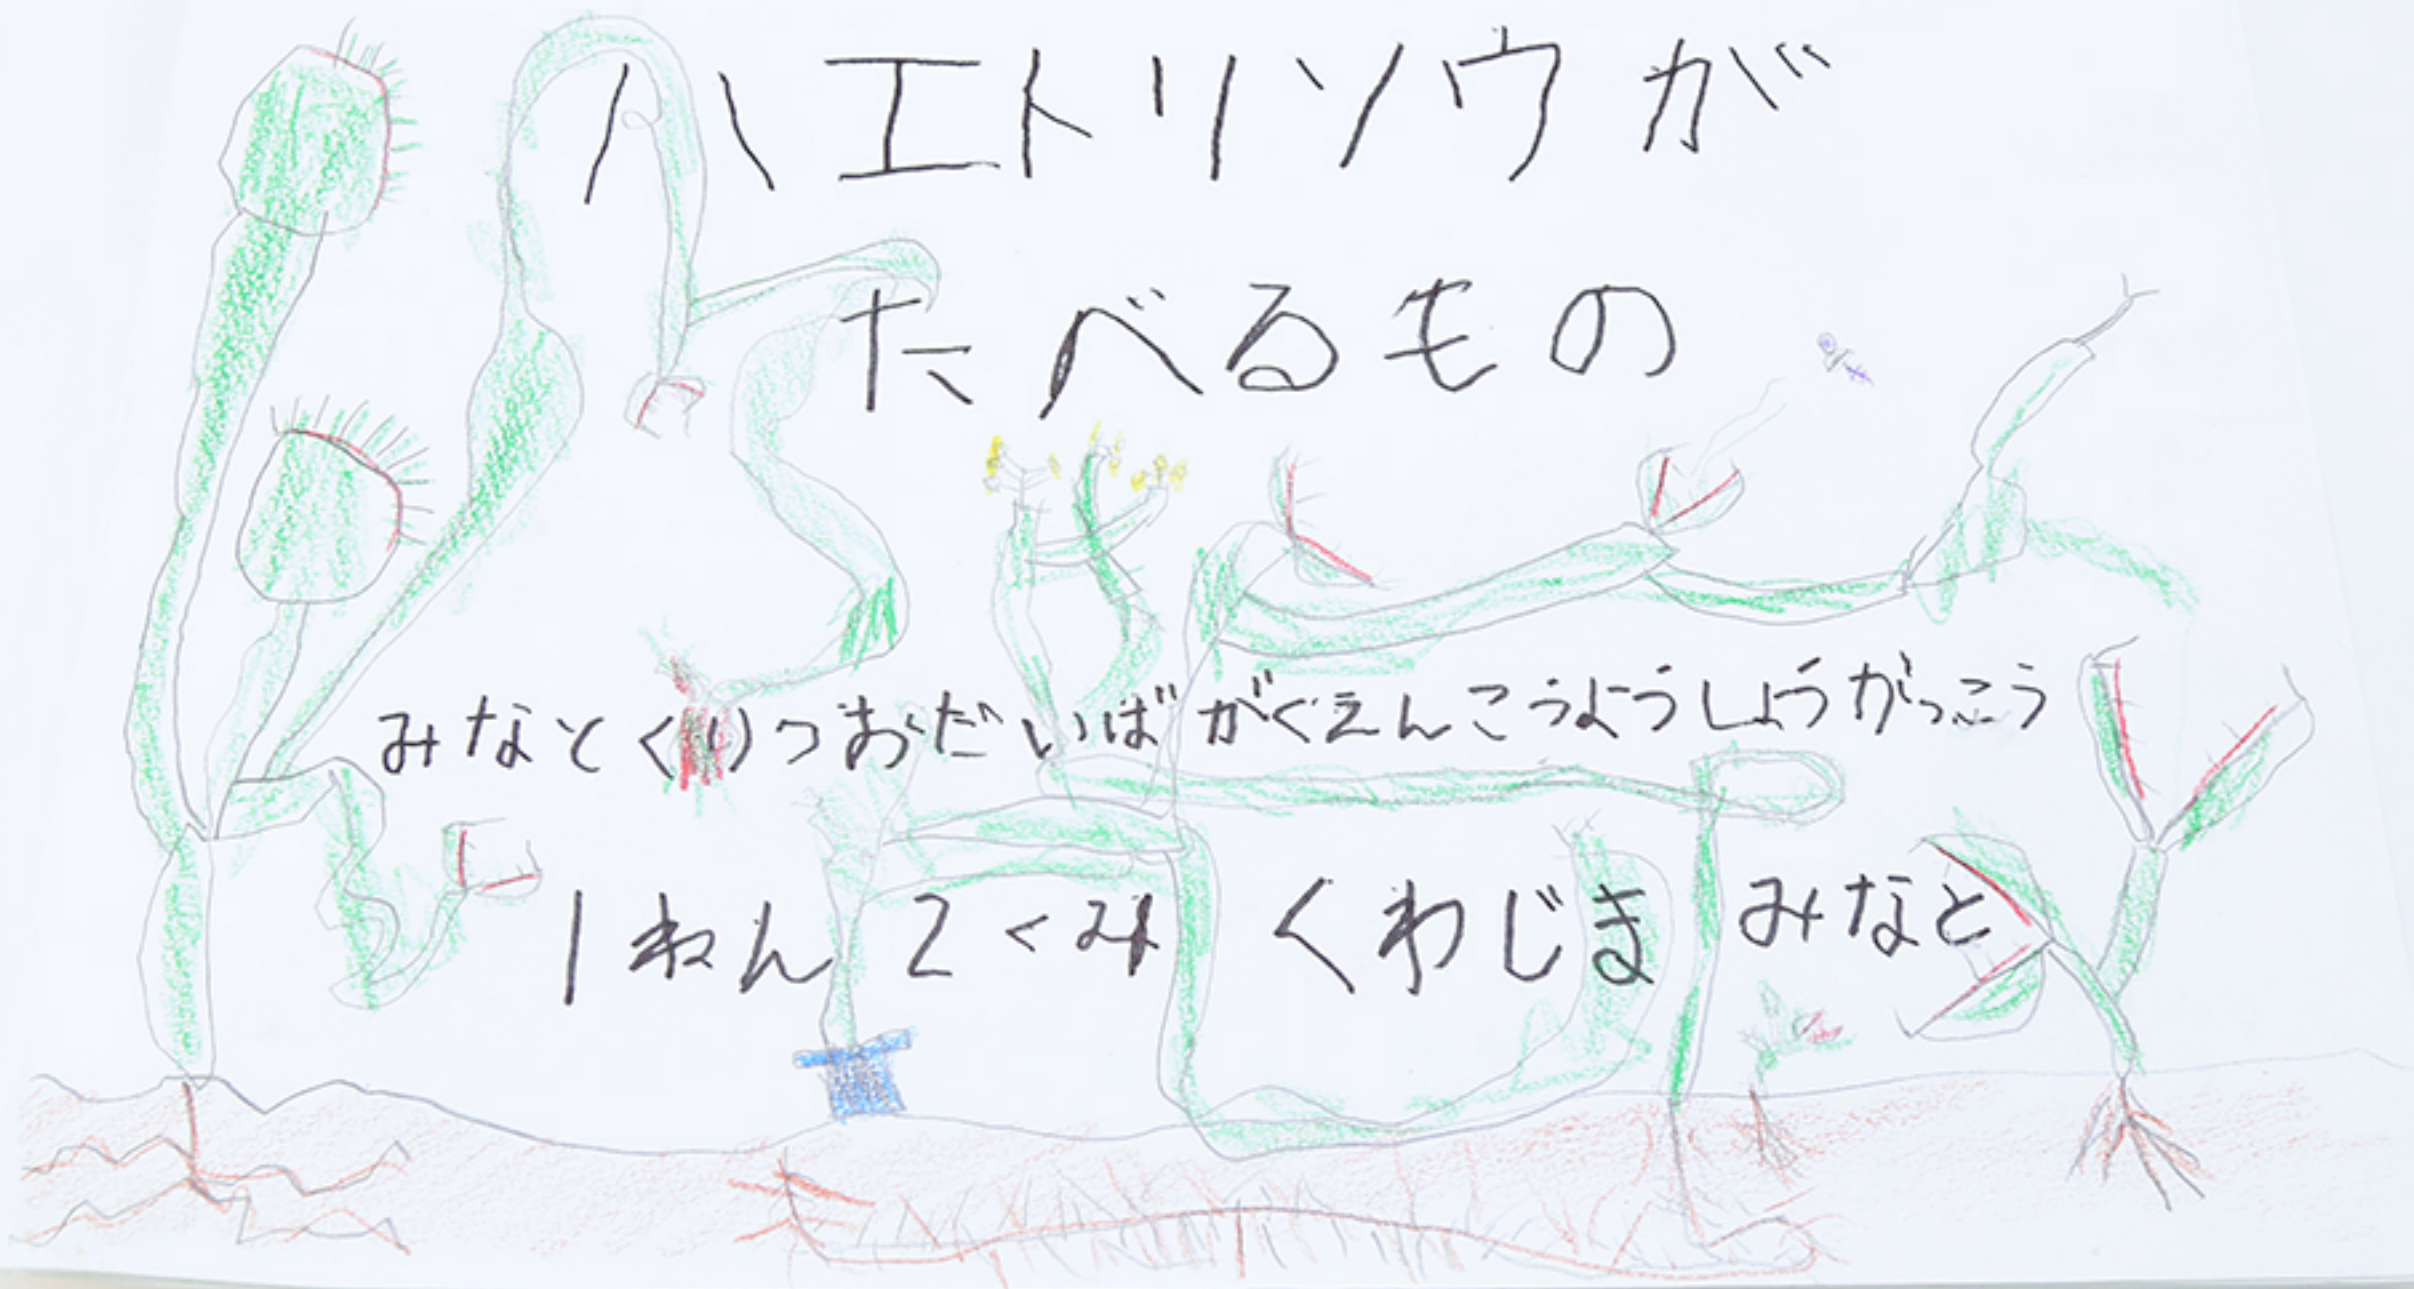 ハエトリソウが
たべるもの
みなとくりつおだいばがくえんこうようしょうがっこう
1ねん2くみ くわじま みなと